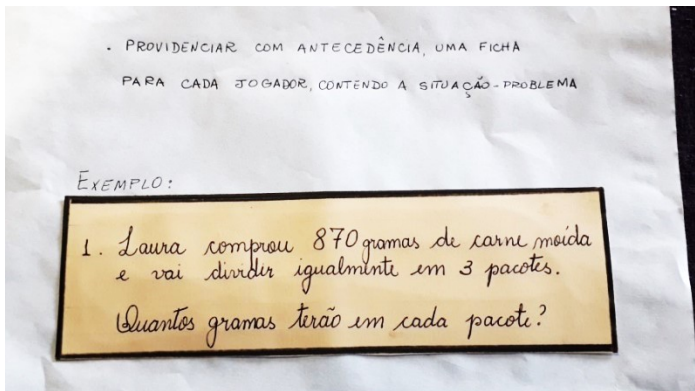 . PROVIDENCIAR COM ANTECEDÊNCIA, UMA FICHA
PARA CADA JOGADOR, CONTENDO A SITUAÇÃO-PROBLEMA
EXEMPLO:
1. Laura comprou 870 gramas de carne moída
e vai dividir igualmente em 3 pacotes.
Quantos gramas terão em cada pacote?